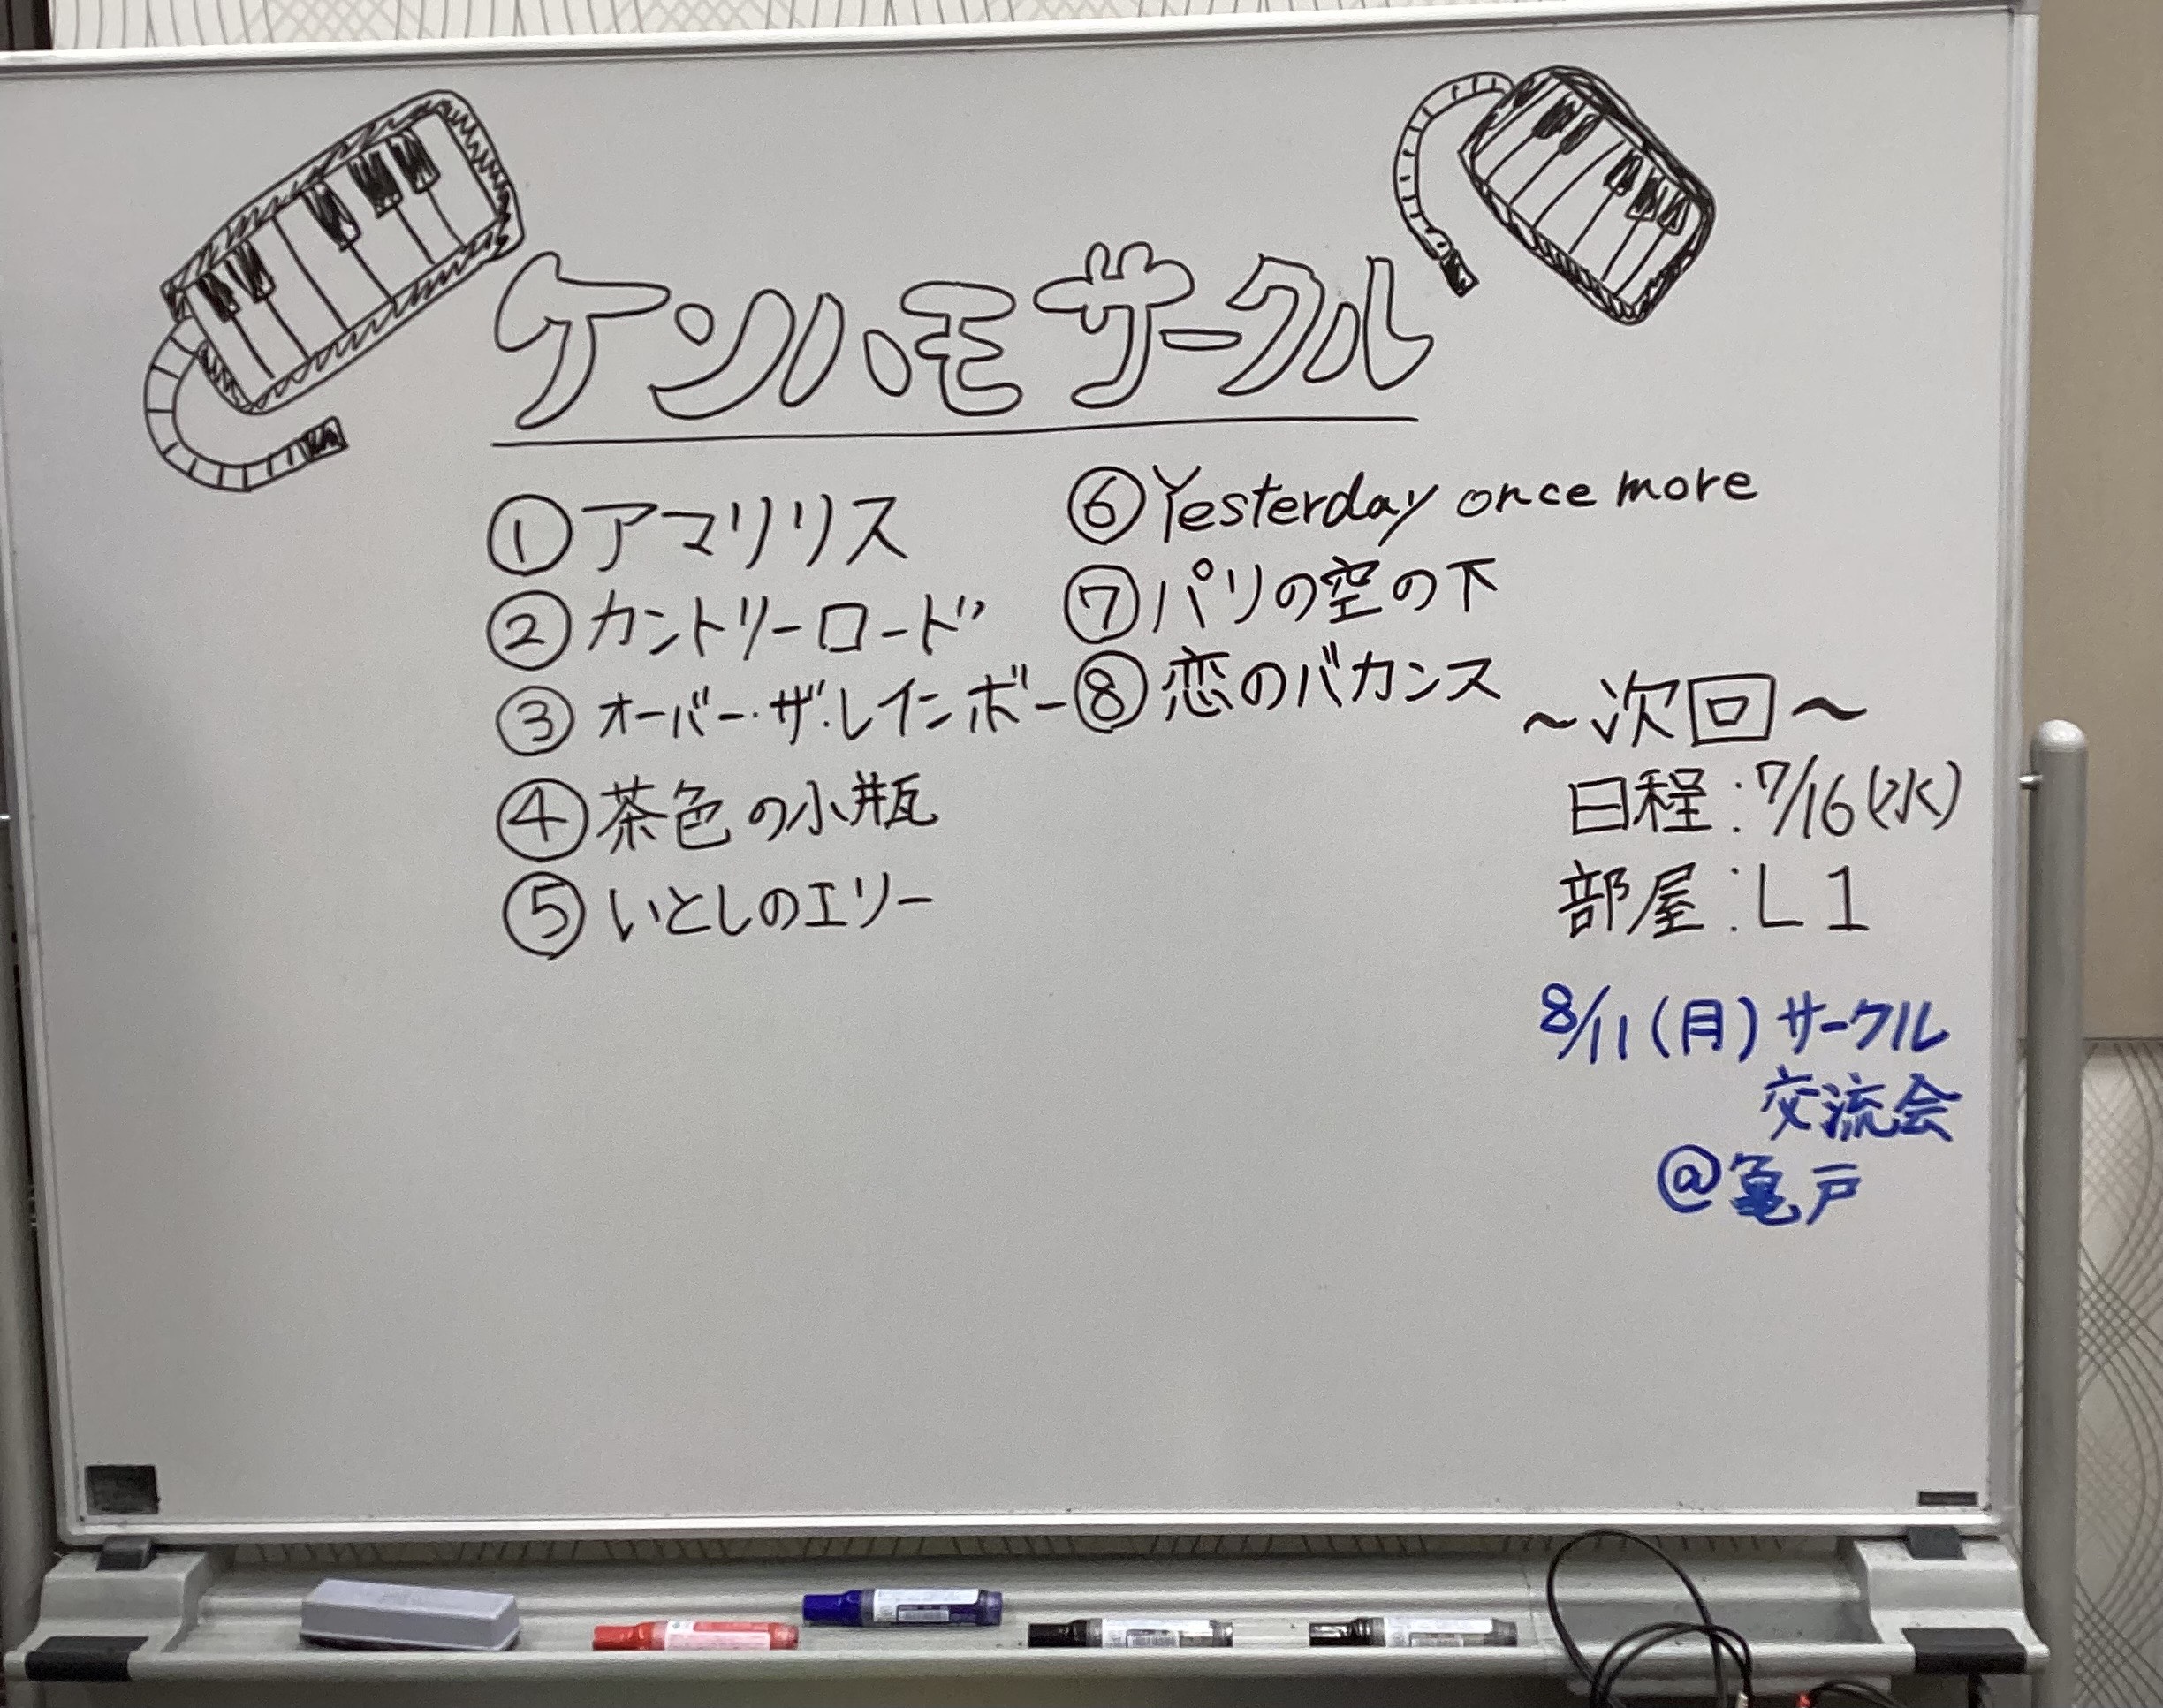 ケンハモサークル
①アマリリス
②カントリーロード
③オーバー・ザ・レインボー
④茶色の小瓶
⑤いとしのエリー
⑥Yesterday once more
⑦パリの空の下
⑧恋のバカンス
～次回～
日程:7/16(水)
部屋:L1
8/11(月)サークル
交流会
@亀戸